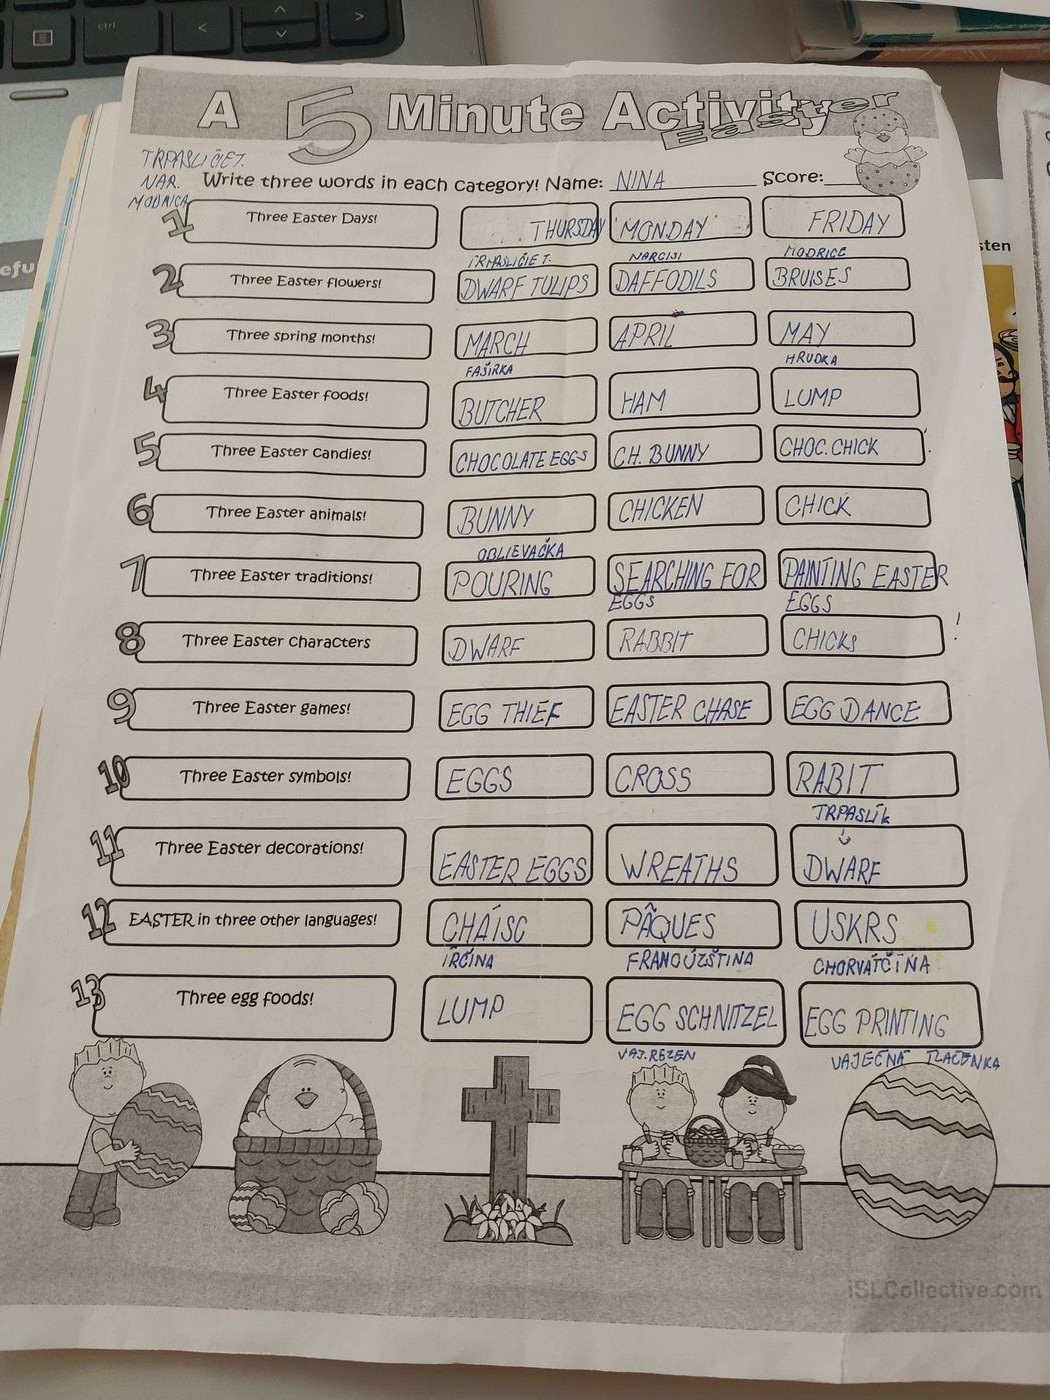 ctrl
A 5 Minute Activity
Easter
TRPASLIČIET.
NAR.
MODRICA
Write three words in each category! Name: NINA Score:
1 Three Easter Days! THURSDAY MONDAY FRIDAY
TRPASLIČIE T. NARCISI MODRICE
2 Three Easter flowers! DWARF TULIPS DAFFODILS BRUISES
3 Three spring months! MARCH APRIL MAY
FAŠÍRKA HRUDKA
4 Three Easter foods! BUTCHER HAM LUMP
5 Three Easter candies! CHOCOLATE EGGS CH. BUNNY CHOC. CHICK
6 Three Easter animals! BUNNY CHICKEN CHICK
OBLIEVAČKA
7 Three Easter traditions! POURING SEARCHING FOR PAINTING EASTER
EGGS EGGS
8 Three Easter characters DWARF RABBIT CHICKS !
9 Three Easter games! EGG THIEF EASTER CHASE EGG DANCE
10 Three Easter symbols! EGGS CROSS RABIT
TRPASLÍK
11 Three Easter decorations! EASTER EGGS WREATHS DWARF
12 EASTER in three other languages! CHÁISC PÂQUES USKRS
ÍRČINA FRANCÚZŠTINA CHORVÁTČINA
13 Three egg foods! LUMP EGG SCHNITZEL EGG PRINTING
VAJ. REZEN VAJEČNÁ TLAČENKA
iSLCollective.com